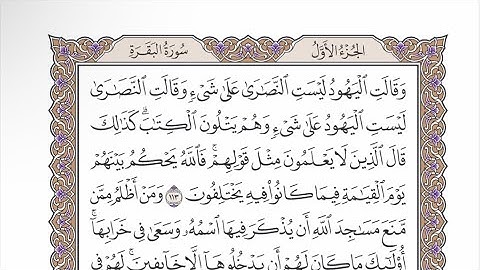 الجُزْءُ الأَوَّلُ
سُورَةُ البَقَرَةِ
وَقَالَتِ ٱلْيَهُودُ لَيْسَتِ ٱلنَّصَٰرَىٰ عَلَىٰ شَىْءٍ وَقَالَتِ ٱلنَّصَٰرَىٰ
لَيْسَتِ ٱلْيَهُودُ عَلَىٰ شَىْءٍ وَهُمْ يَتْلُونَ ٱلْكِتَٰبَۗ كَذَٰلِكَ
قَالَ ٱلَّذِينَ لَا يَعْلَمُونَ مِثْلَ قَوْلِهِمْۚ فَٱللَّهُ يَحْكُمُ بَيْنَهُمْ
يَوْمَ ٱلْقِيَٰمَةِ فِيمَا كَانُوا۟ فِيهِ يَخْتَلِفُونَ ١١٣ وَمَنْ أَظْلَمُ مِمَّن
مَّنَعَ مَسَٰجِدَ ٱللَّهِ أَن يُذْكَرَ فِيهَا ٱسْمُهُۥ وَسَعَىٰ فِى خَرَابِهَآۚ
أُو۟لَٰٓئِكَ مَا كَانَ لَهُمْ أَن يَدْخُلُوهَآ إِلَّا خَآئِفِينَۚ لَهُمْ فِى